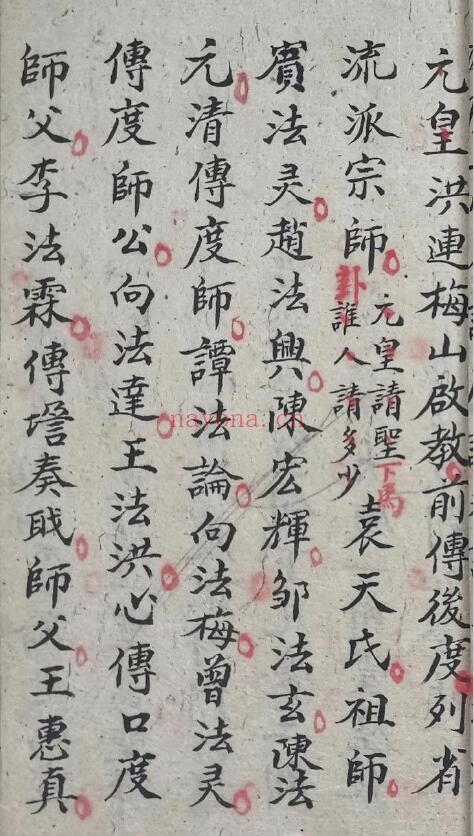 元皇洪連梅山啟教前傳後度列省
流派宗師元皇請聖下馬卦誰人請多少袁天氏祖師
賓法灵趙法興陳宏輝邹法玄陳法
元清傳度師譚法論向法梅曾法灵
傳度師公向法達王法洪心傳口度
師父李法霖傳奏戝師父王惠真
nayona.cn